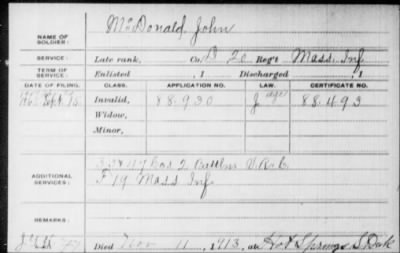 NAME OF SOLDIER: McDonald John
SERVICE: Late rank, Co. D 20 Reg't Mass Inf
TERM OF SERVICE: Enlisted , 1 Discharged , 1
DATE OF FILING. CLASS. APPLICATION NO. LAW. CERTIFICATE NO.
Invalid, 88.930 88.493
Widow,
Minor,
ADDITIONAL SERVICES: 2 Battln V.R.C.
F 19 Mass Inf
REMARKS:
Died Nov 11, 1913, at Hot Springs S. Dak